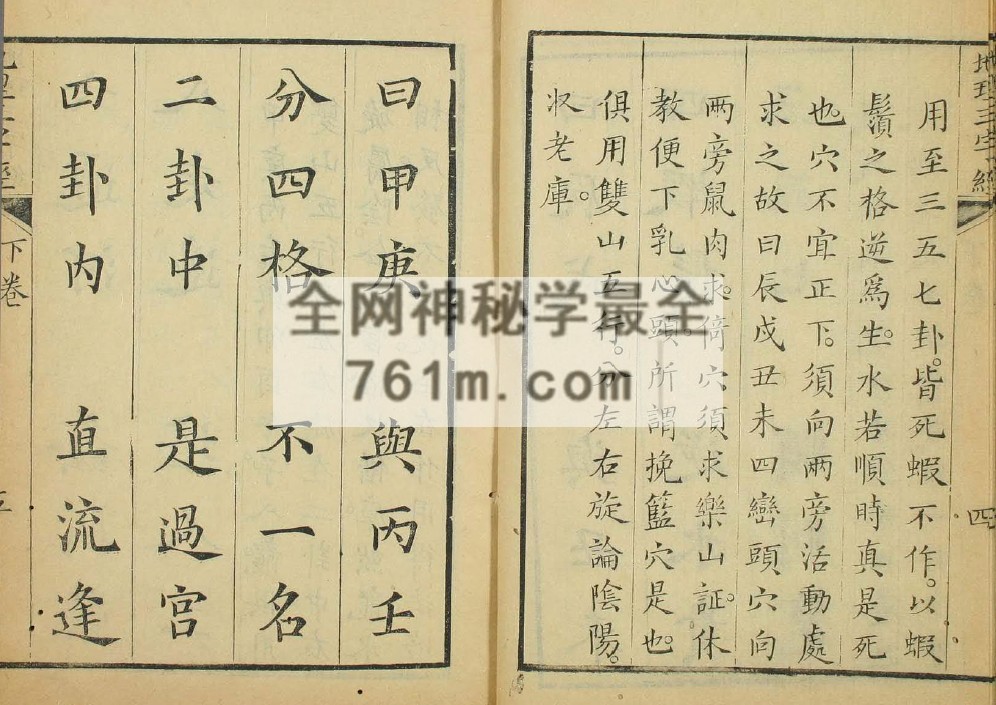 四
用至三五七卦。皆死蝦不作。以蝦
鬚之格逆爲生。水若順時真是死
也。穴不宜正下。須向兩旁活動處
求之故曰辰戌丑未四巒頭穴向
兩旁鼠肉求。倚穴須求樂山証。休
教便下乳心頭。所謂挽籃穴是也。
俱用雙山五行。分左右旋論陰陽。
收老庫。
曰甲庚與丙壬
分四格不一名
二卦中是過宮
四卦内直流逢
下卷
全网神秘学最全
761m.com